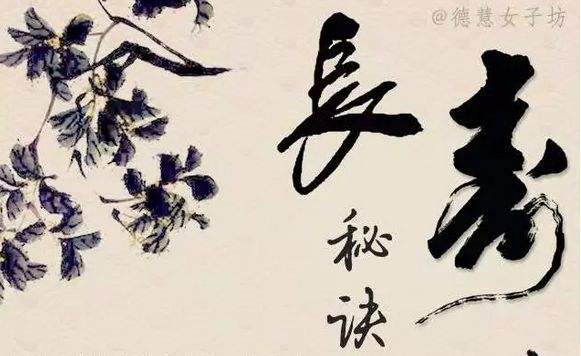 @德慧女子坊
長壽
秘诀